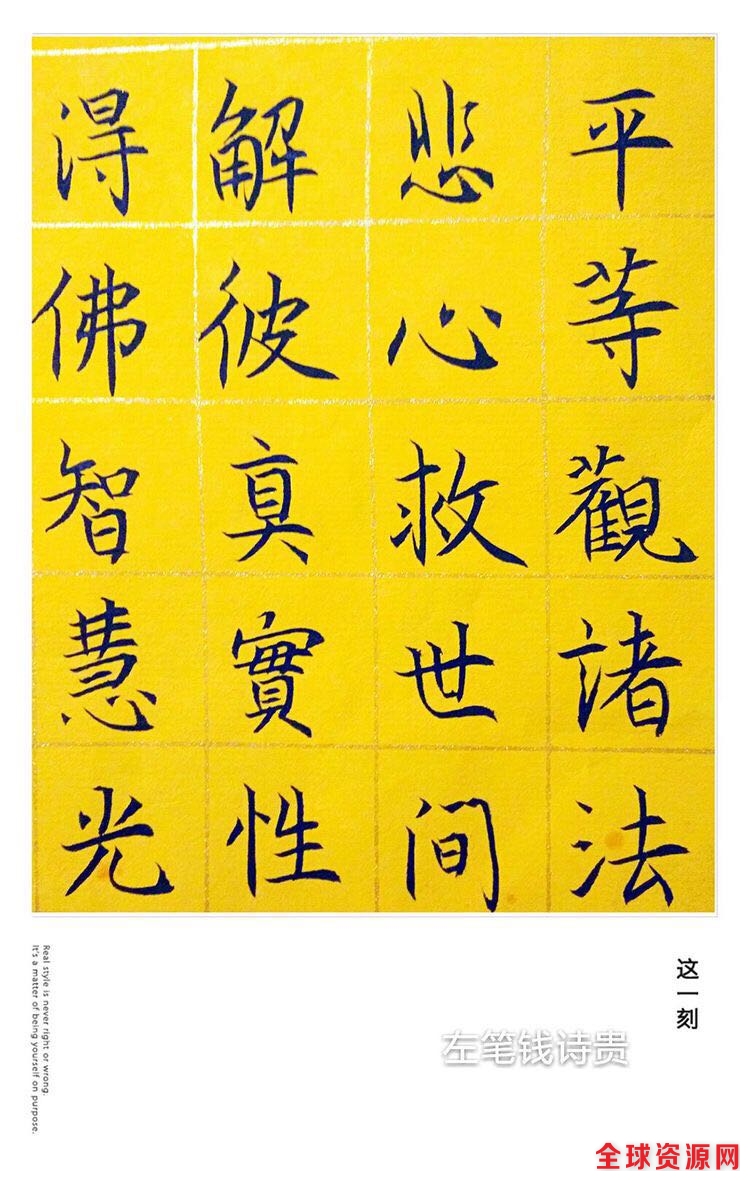 平等觀諸法
悲心救世间
解彼真實性
得佛智慧光
这一刻
左笔钱诗贵
Real style is never right or wrong.
It's a matter of being yourself on purpose.
全球资源网